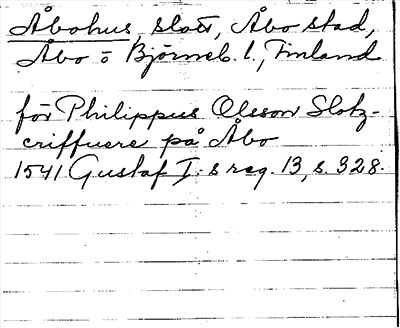 Åbohus, slott, Åbo stad,
Åbo o Björneb. l., Finland
för Philippus Olsson Slotz-
criffuere på Åbo
1541 Gustaf I:s reg. 13, s. 328.